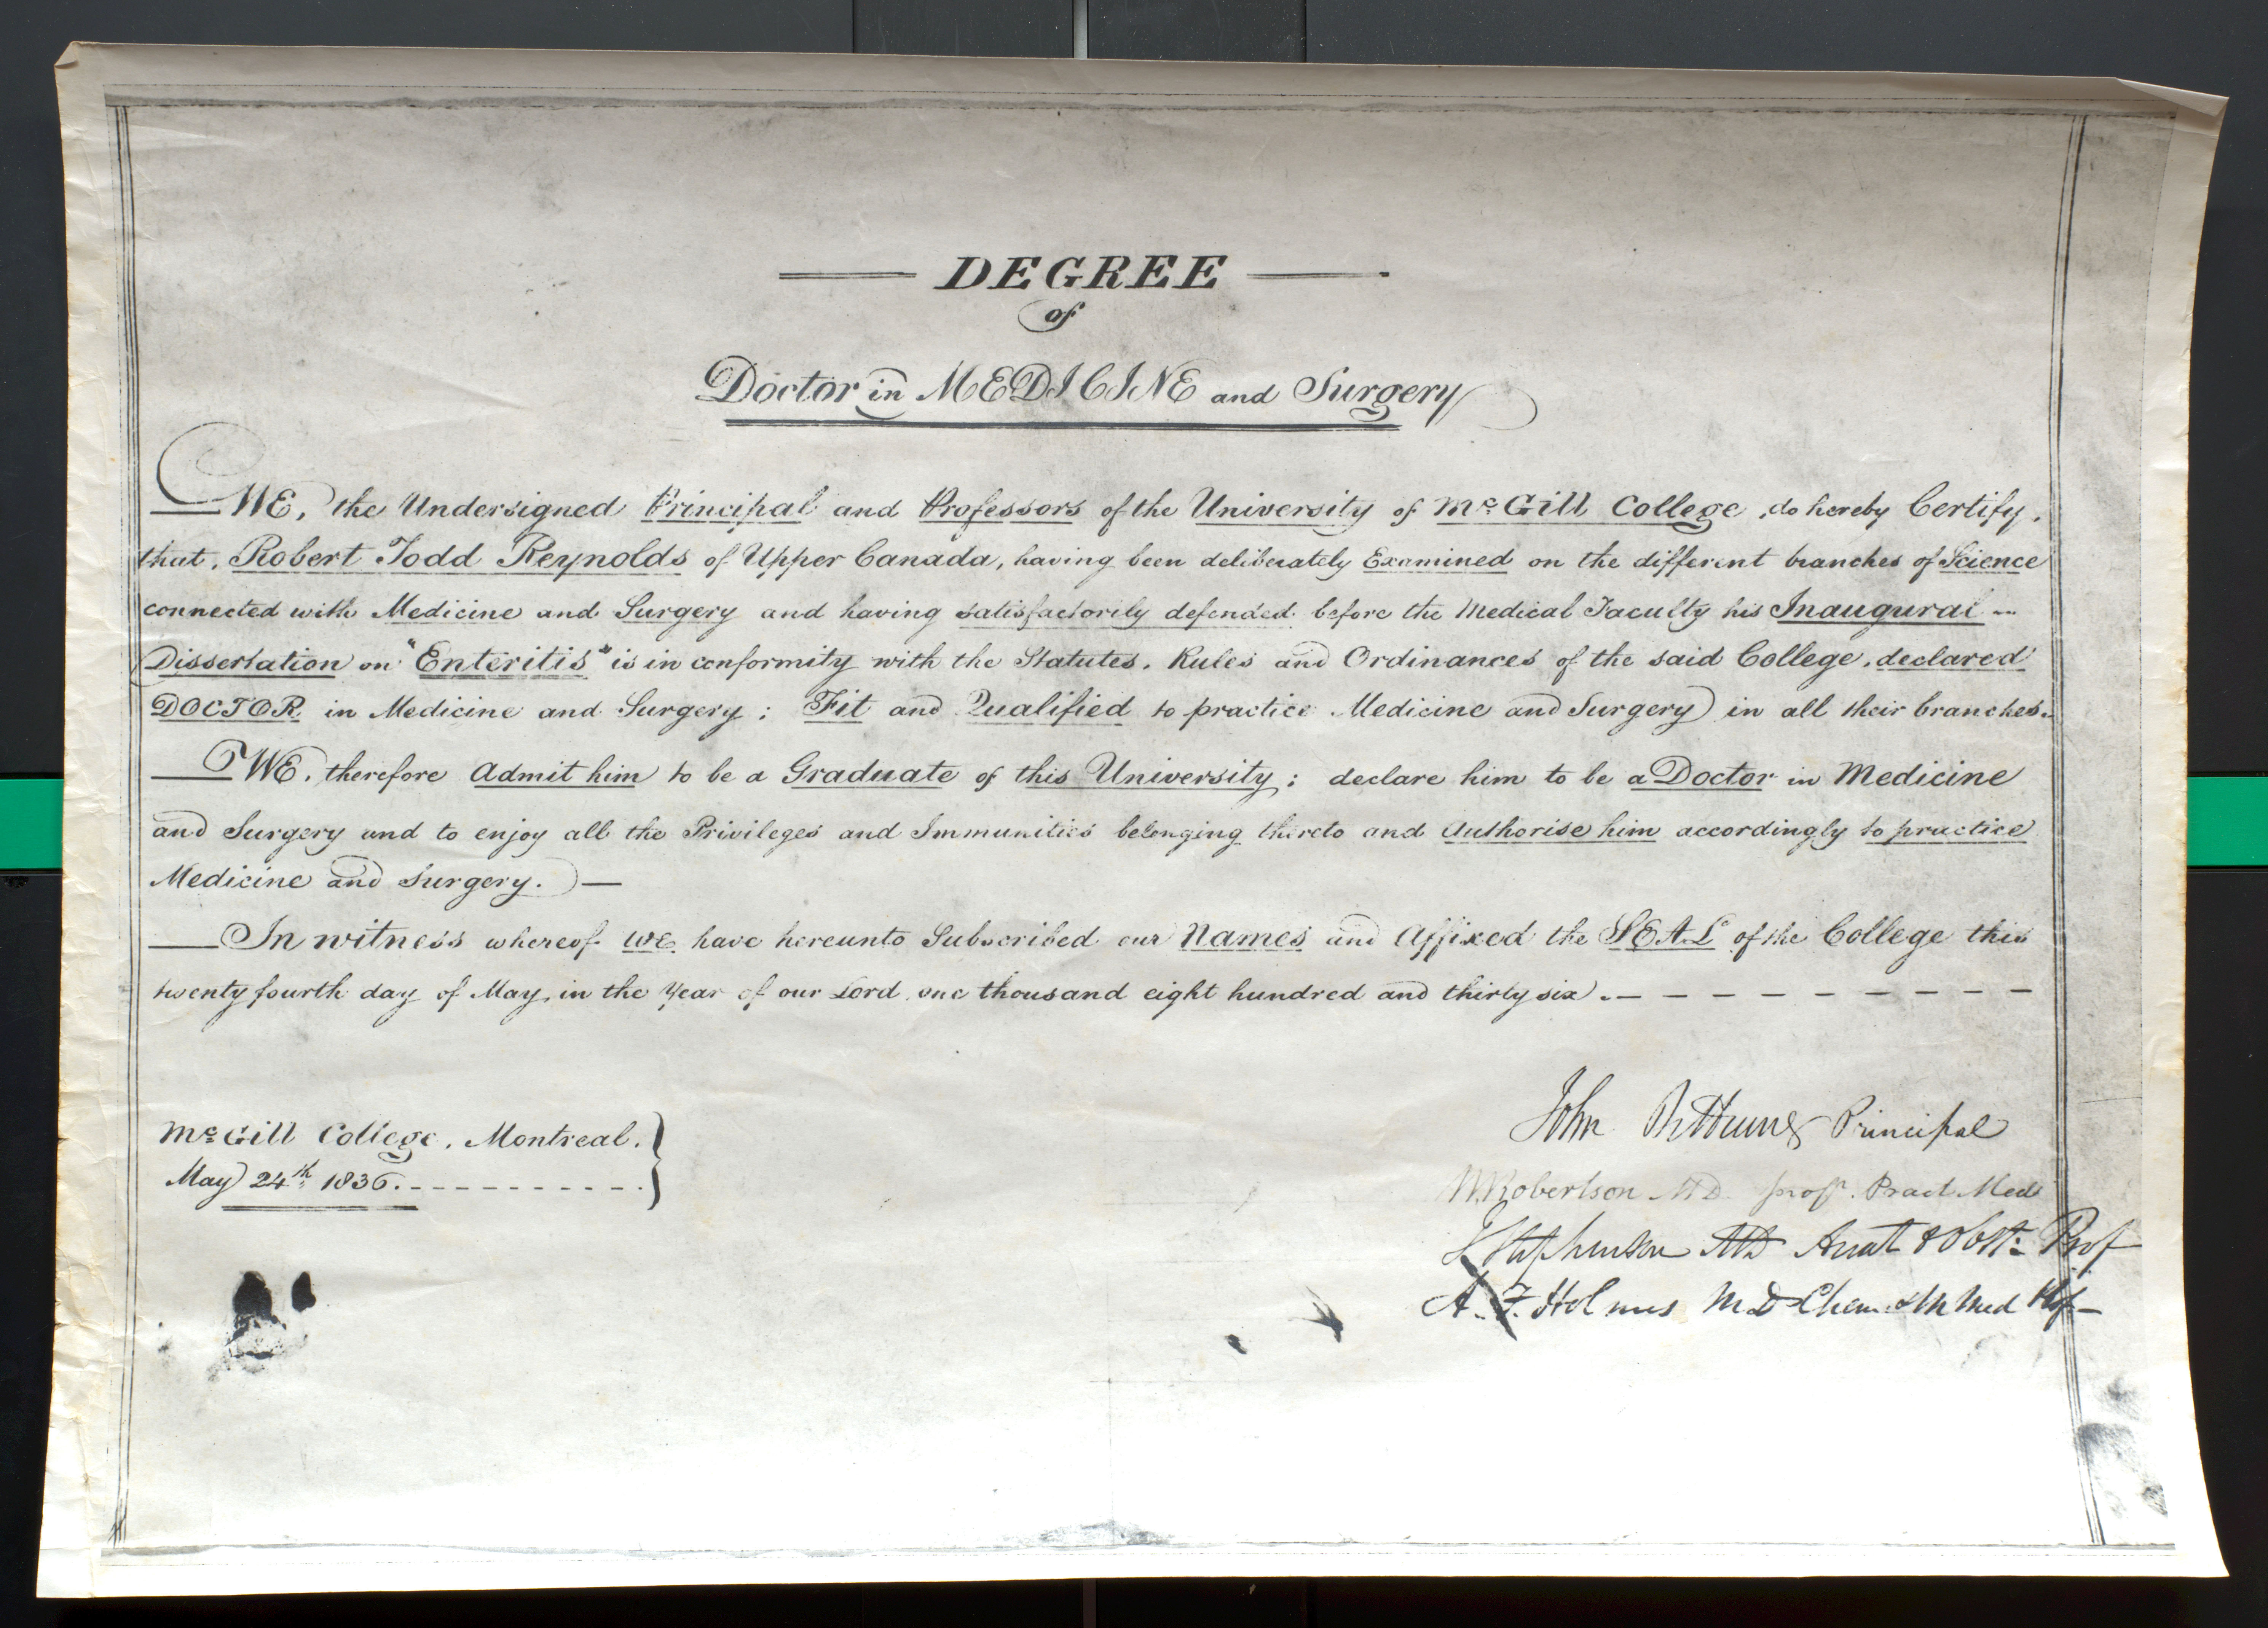 DEGREE
of
Doctor in MEDICINE and Surgery
WE, the Undersigned Principal and Professors of the University of McGill College, do hereby Certify,
that, Robert Todd Reynolds of Upper Canada, having been deliberately Examined on the different branches of Science
connected with Medicine and Surgery and having satisfactorily defended before the Medical Faculty his Inaugural
Dissertation on "Enteritis" is in conformity with the Statutes, Rules and Ordinances of the said College, declared
DOCTOR in Medicine and Surgery; Fit and Qualified to practice Medicine and Surgery in all their branches.
WE, therefore Admit him to be a Graduate of this University; declare him to be a Doctor in Medicine
and Surgery and to enjoy all the Privileges and Immunities belonging thereto and Authorise him accordingly to practice
Medicine and Surgery. —
In witness whereof we have hereunto Subscribed our Names and Affixed the SEAL of the College this
twenty fourth day of May, in the Year of our Lord one thousand eight hundred and thirty six. — — — — — — — — — —
McGill College, Montreal.
May 24th 1836.
John Bethune Principal
W Robertson MD. prof. Pract Med
J Stephenson MD Anat & Obst: Prof
A. F. Holmes MD Chem & M Med Prof